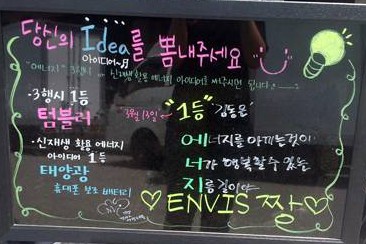 당신의 Idea를 뽐내주세요
아이디어~용
"에너지" 3행시 or 신재생활용 에너지 아이디어로 써주시면 됩니다.
·3행시 1등
텀블러
·신재생 활용 에너지
아이디어 1등
태양광
휴대폰 보조 배터리
3월 13일 "1등" "김동은"
에너지를 아끼는것이
너가 행복할수 있는
지름길이야
ENVIS 짱